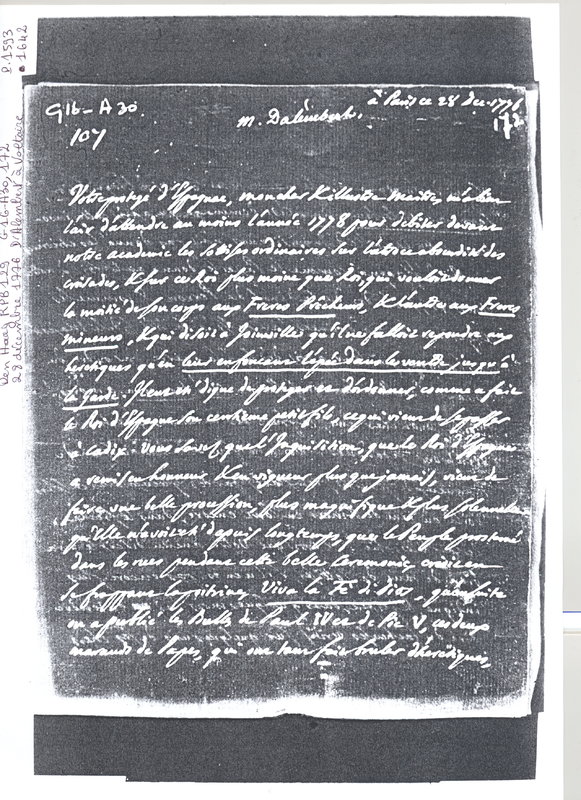 p. 1593
• 1642
Den Haag RPB 129 G16-A30, 172
28 décembre 1776 D'Alembert à Voltaire
G16-A30
107
à Paris ce 28 dec. 1776
172
m. Dalembert,
Votre protegé d'Espagnac, mon cher & illustre maitre, m'a bien
l'air d'attendre au moins l'année 1778 pour debiter devant
notre academie les sottises ordinaires sur l'atroce absurdité des
croisades, & sur ce Roi plus moine que Roi, qui vouloit donner
la moitié de son corps aux Freres Prêcheurs, & l'autre aux Freres
mineurs, & qui disoit à Joinville qu'il ne falloit repondre aux
heretiques qu'en leur enfonçant l'épée dans le ventre jusqu'à
la Garde. Il eut été digne de proteger et d'ordonner, comme a fait
le Roi d'Espagne son centieme petit fils, ce qui vient de se passer
à Cadix. Vous savez que l'Inquisition, que le Roi d'Espagne
a remis en honneur & en vigueur plus que jamais, vient de
faire une belle procession, plus magnifique & plus solennelle
qu'elle n'avoit été depuis longtemps, que le Peuple prosterné
dans les rues pendant cette belle ceremonie, crioit en
se frappant la poitrine, Viva la Fè di dios, qu'ensuite
on a publié les Bulles de Paul IV & de Pie V, ces deux
marauds de Papes, qui ont tant fait bruler d'heretiques,